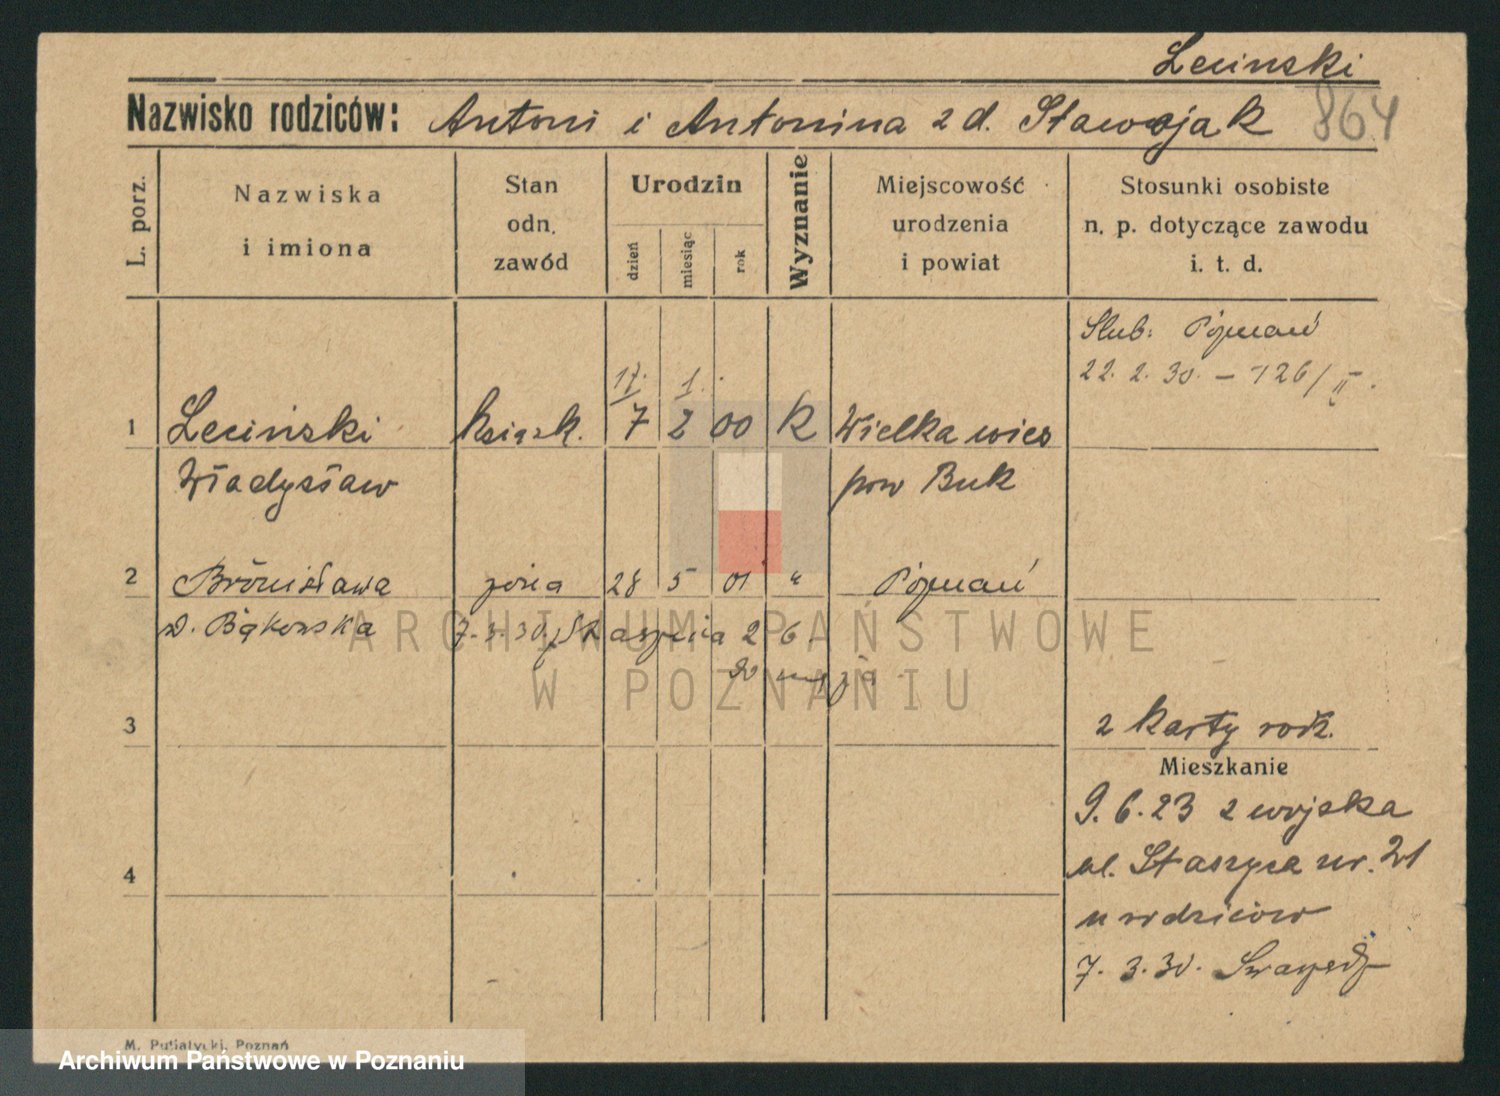 Leciński
Nazwisko rodziców: Antoni i Antonina z d. Stawojak 864
L. porz.
Nazwiska
i imiona
Stan
odn.
zawód
Urodzin
dzień
miesiąc
rok
Wyznanie
Miejscowość
urodzenia
i powiat
Stosunki osobiste
n. p. dotyczące zawodu
i. t. d.
Slub: Poznań
22. 2. 30. – 126/II.
17. 1.
1 Leciński Książk. 7 2 00 K Wielkawieś
Władysław pow Buk
2 Bronisława żona 28 5 01 " Poznań
d. Bąkowska 7. 3. 30.
3
2 karty rodz.
Mieszkanie
9. 6. 23 z wojska
ul. Staszyca nr. 21
u rodziców
7. 3. 30.
4
ARCHIWUM PAŃSTWOWE
W POZNANIU
M. Putiatycki, Poznań
Archiwum Państwowe w Poznaniu